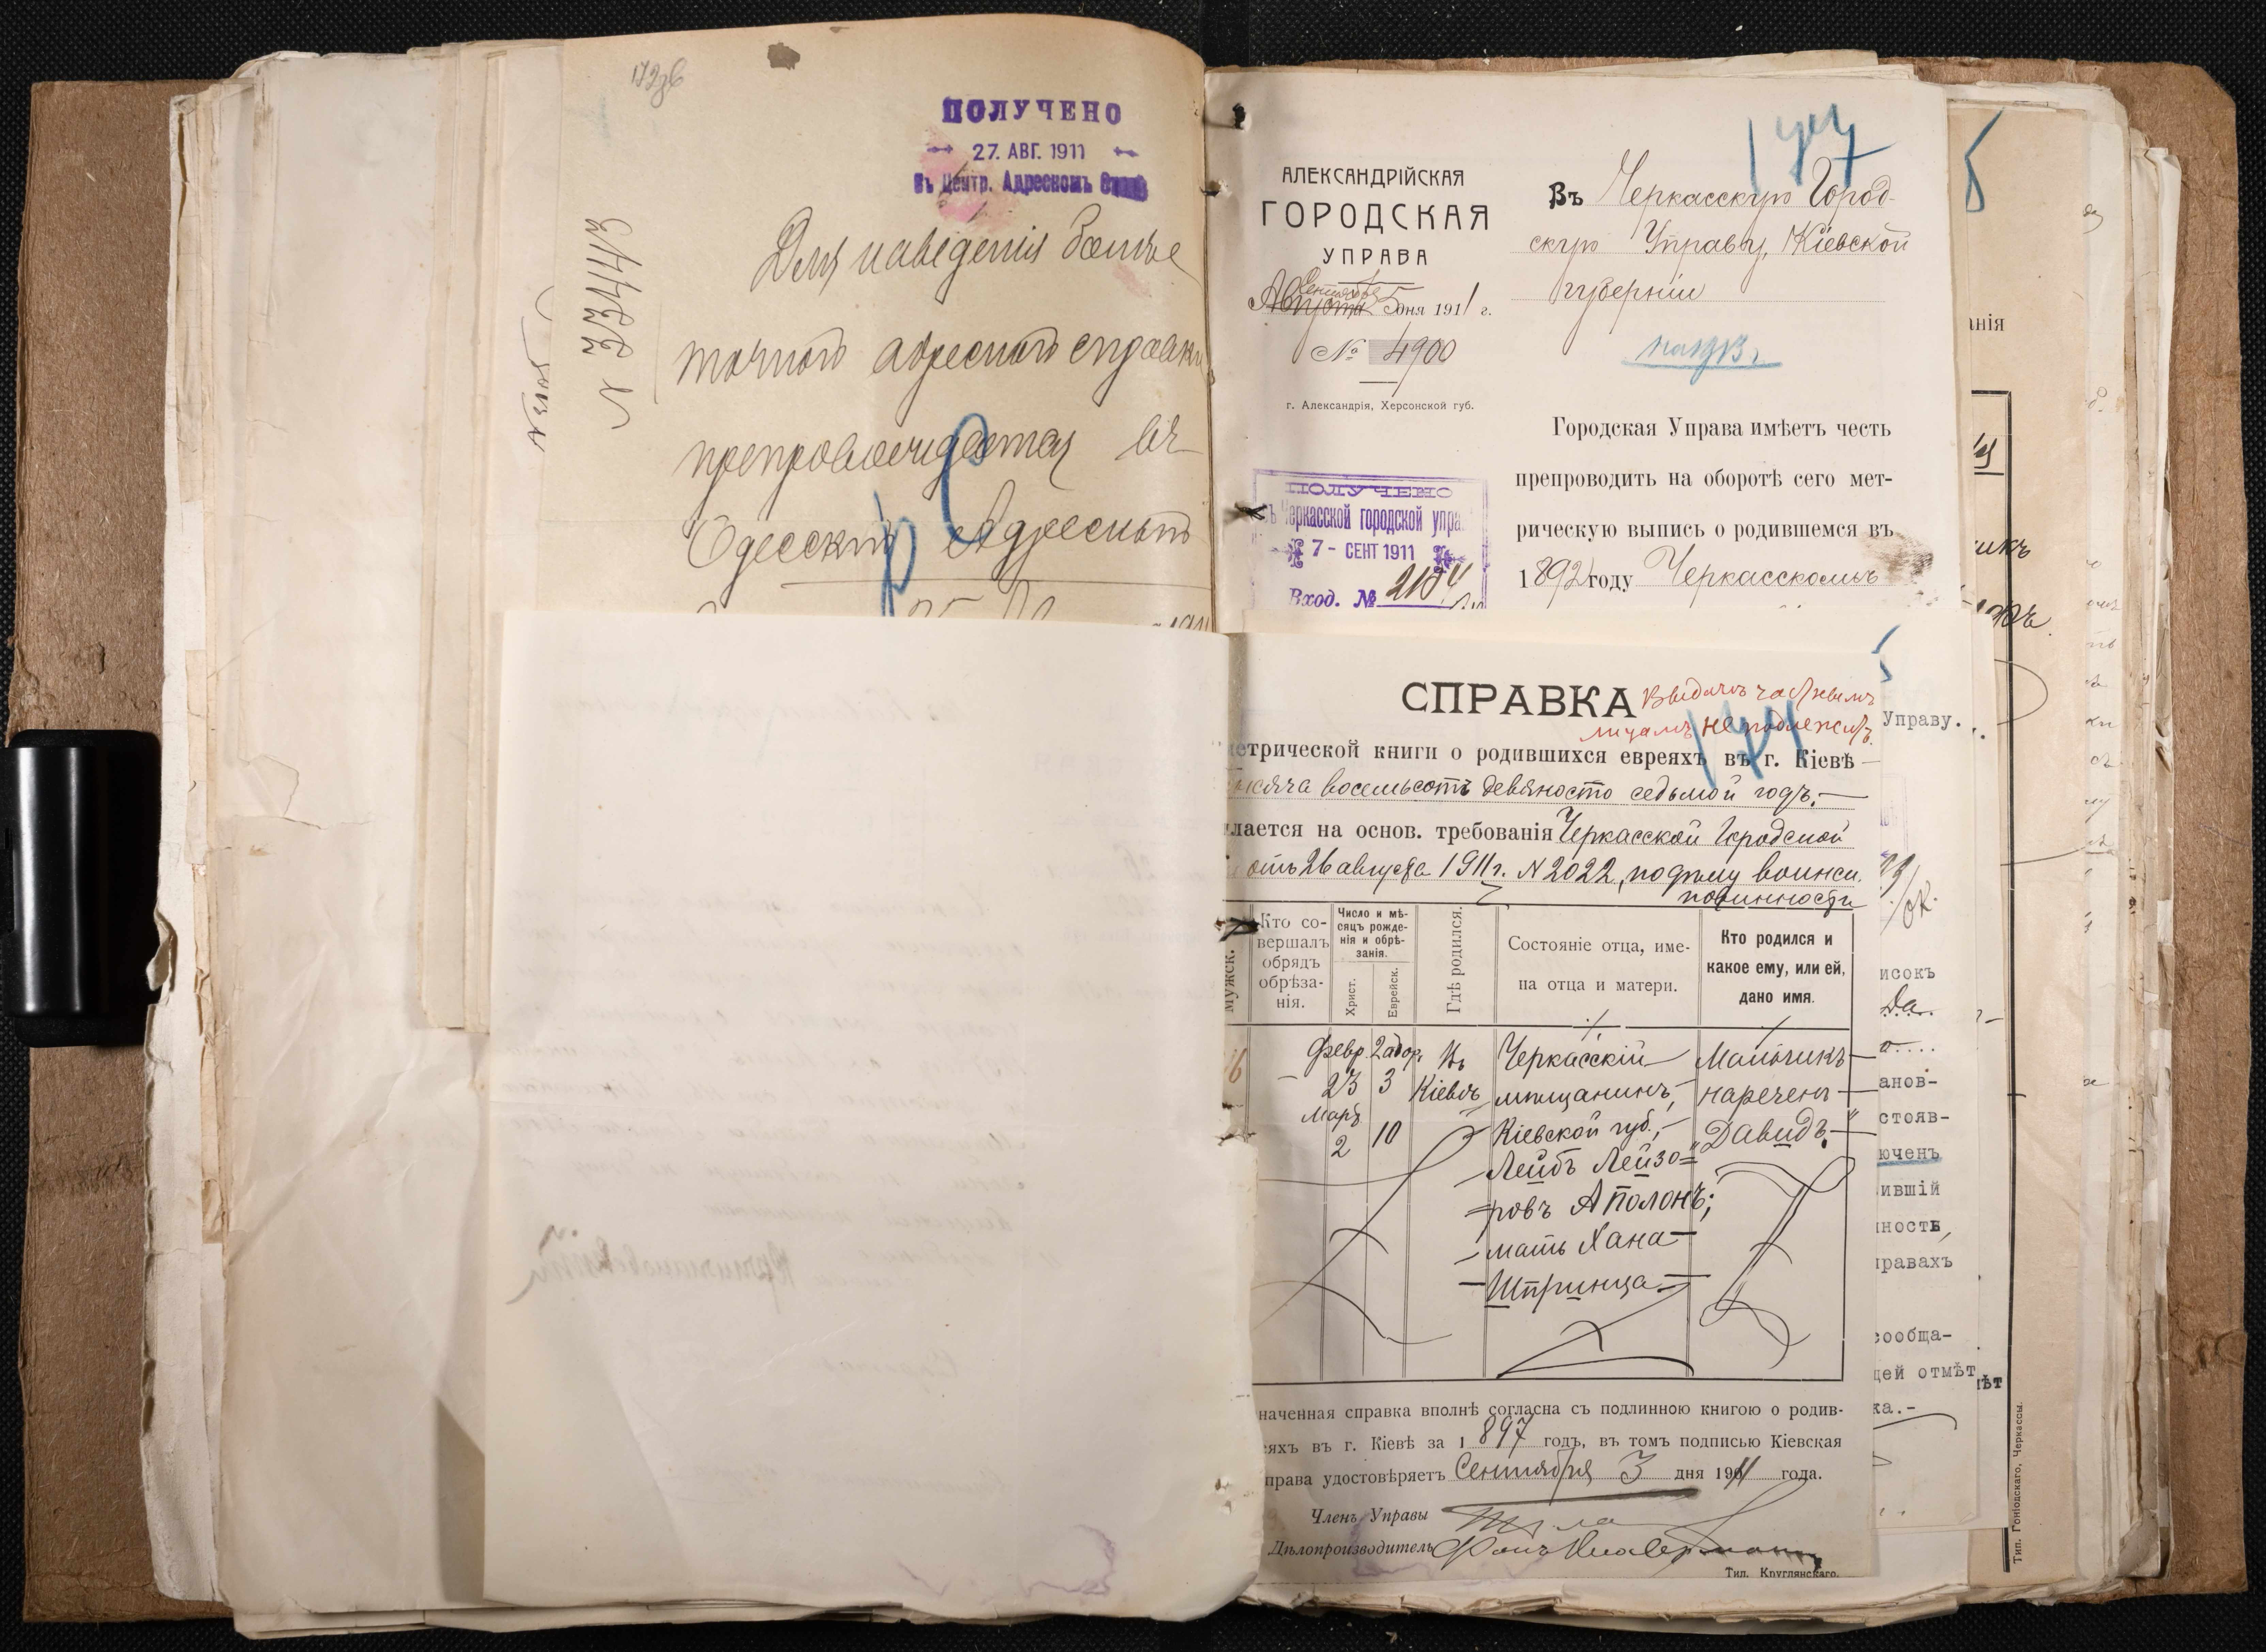 ПОЛУЧЕНО
27. АВГ. 1911
Въ Центр. Адресномъ
Для наведенія болѣе
точной адресной справки
препровождается въ
Одесскій Адресный
№ 22442
АЛЕКСАНДРІЙСКАЯ
ГОРОДСКАЯ
УПРАВА
Сентября
Августа 5 дня 1911 г.
№ 4900
г. Александрія, Херсонской губ.
ПОЛУЧЕНО
Черкасской городской упра
7 - СЕНТ 1911
Вход. № 2184
Въ Черкасскую Город-
скую Управу, Кіевской
губерніи
Городская Управа имѣетъ честь
препроводить на оборотѣ сего мет-
рическую выпись о родившемся въ
1892 году Черкасскомъ
СПРАВКА
Выдачѣ частнымъ
лицамъ не подлежитъ.
171
етрической книги о родившихся евреяхъ въ г. Кіевѣ
ысяча восемьсотъ девяносто седьмой годъ.
лается на основ. требованія Черкасской Городской
отъ 26 августа 1911 г. № 2022, по дѣлу воинск.
повинности
Мужск.
Кто со-
вершалъ
обрядъ
обрѣза-
нія.
Число и мѣ-
сяцъ рожде-
нія и обрѣ-
занія.
Христ.
Еврейск.
Гдѣ родился.
Состояніе отца, име-
на отца и матери.
Кто родился и
какое ему, или ей,
дано имя.
Февр. 2 адор. Въ Черкасскій Мальчикъ
23 3 Кіевѣ мѣщанинъ, нареченъ
Мартъ
2 10 Кіевской губ., „Давидъ."
Лейбъ Лейзо=
=ровъ Аполонъ;
мать Хана
Штринца
наченная справка вполнѣ согласна съ подлинною книгою о родив-
еяхъ въ г. Кіевѣ за 1897 годъ, въ томъ подписью Кіевская
права удостовѣряетъ Сентября 3 дня 1911 года.
Членъ Управы
Дѣлопроизводитель
Тип. Круглянскаго.
Управу.
исокъ
Да.
анов-
стояв-
юченъ
ившій
ность,
равахъ
сообща-
щей отмѣт
ка.-
анія
Тип. Гоніодскаго, Черкассы.